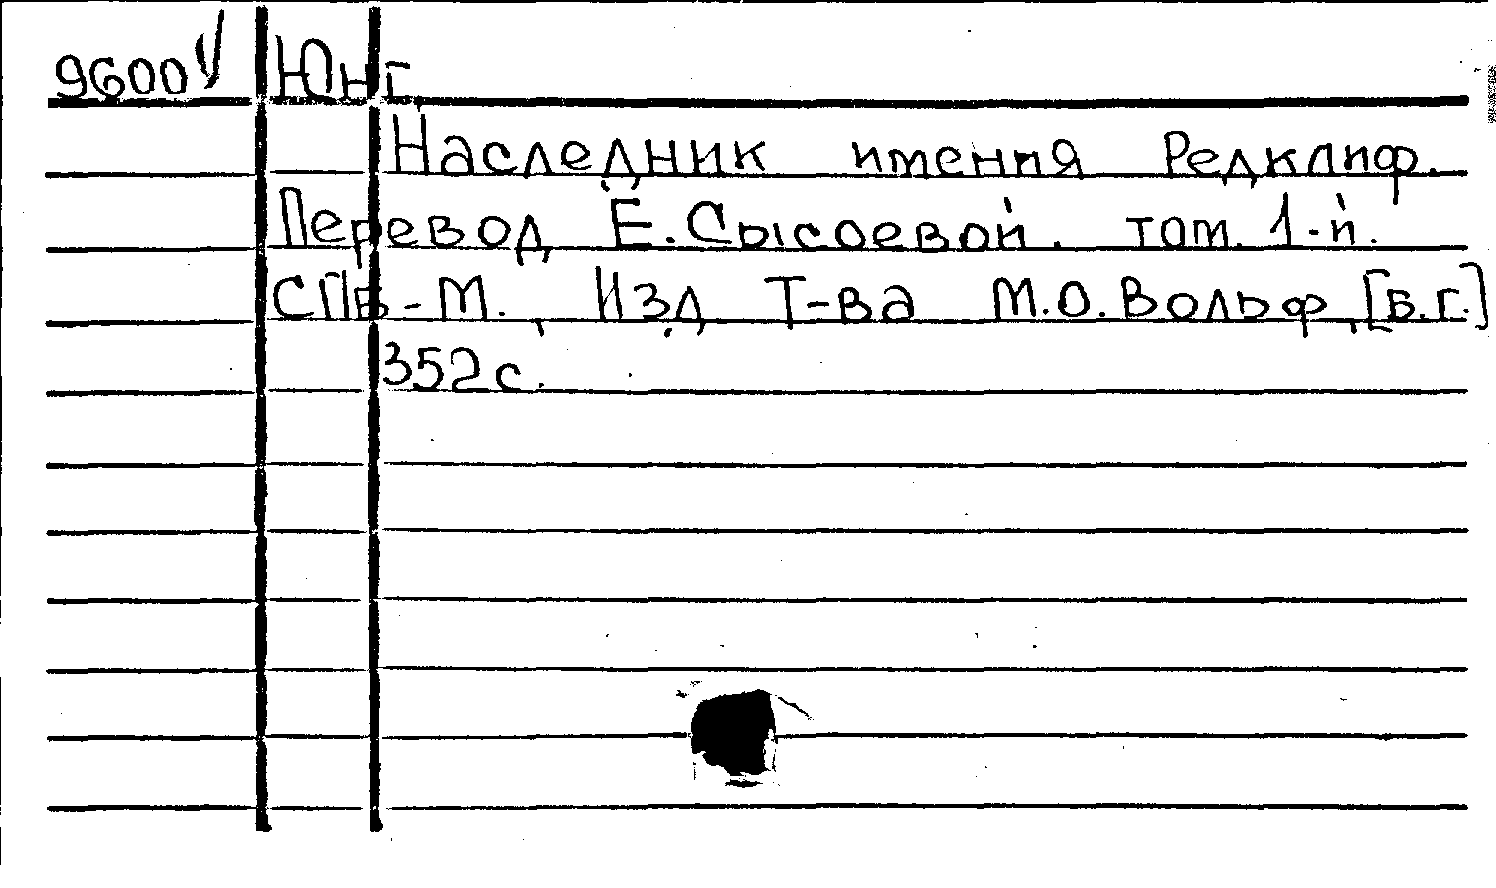 9600 V Юнг
Наследник имения Редклиф.
Перевод Е. Сысоевой. том. 1-й.
СПБ-М., Изд. Т-ва М.О. Вольф, [Б.г.]
352 с.